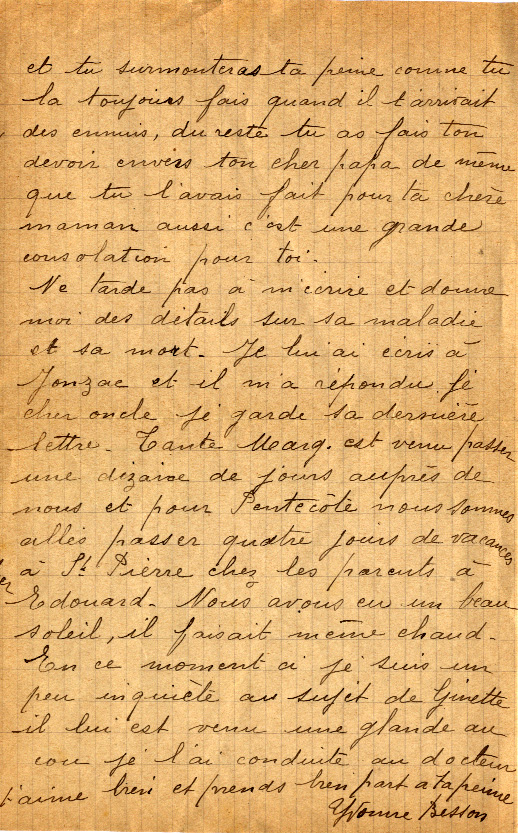 et tu surmonteras ta peine comme tu
la toujours fais quand il t'arrivait
des ennuis, du reste tu as fais ton
devoir envers ton cher papa de même
que tu l'avais fait pour ta chère
maman aussi c'est une grande
consolation pour toi.
Ne tarde pas à m'écrire et donne
moi des détails sur sa maladie
et sa mort. Je lui ai écris à
Jonzac et il m'a répondu je
cher oncle je garde sa dernière
lettre. Tante Marg. est venu passer
une dizaine de jours auprès de
nous et pour Pentecôte nous sommes
allés passer quatre jours de vacances
à St Pierre chez les parents à
Edouard. Nous avons eu un beau
soleil, il faisait même chaud.
En ce moment ci je suis un
peu inquiète au sujet de Ginette
il lui est venu une glande au
cou je l'ai conduite au docteur
t'aime bien et prends bien part a ta peine
Yvonne Besson